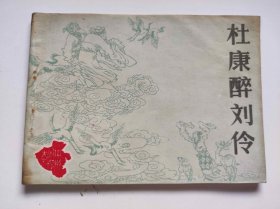 杜康醉刘伶